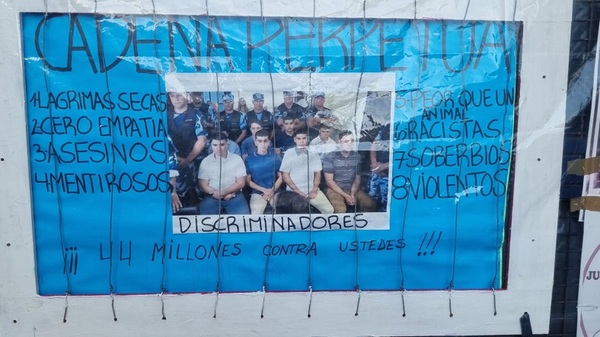 CADENA PERPETUA
1 LAGRIMAS SECAS
2 CERO EMPATIA
3 ASESINOS
4 MENTIROSOS
5 PEOR QUE UN
ANIMAL
6 RACISTAS
7 SOBERBIOS
8 VIOLENTOS
DISCRIMINADORES
¡¡¡ 44 MILLONES CONTRA USTEDES !!!